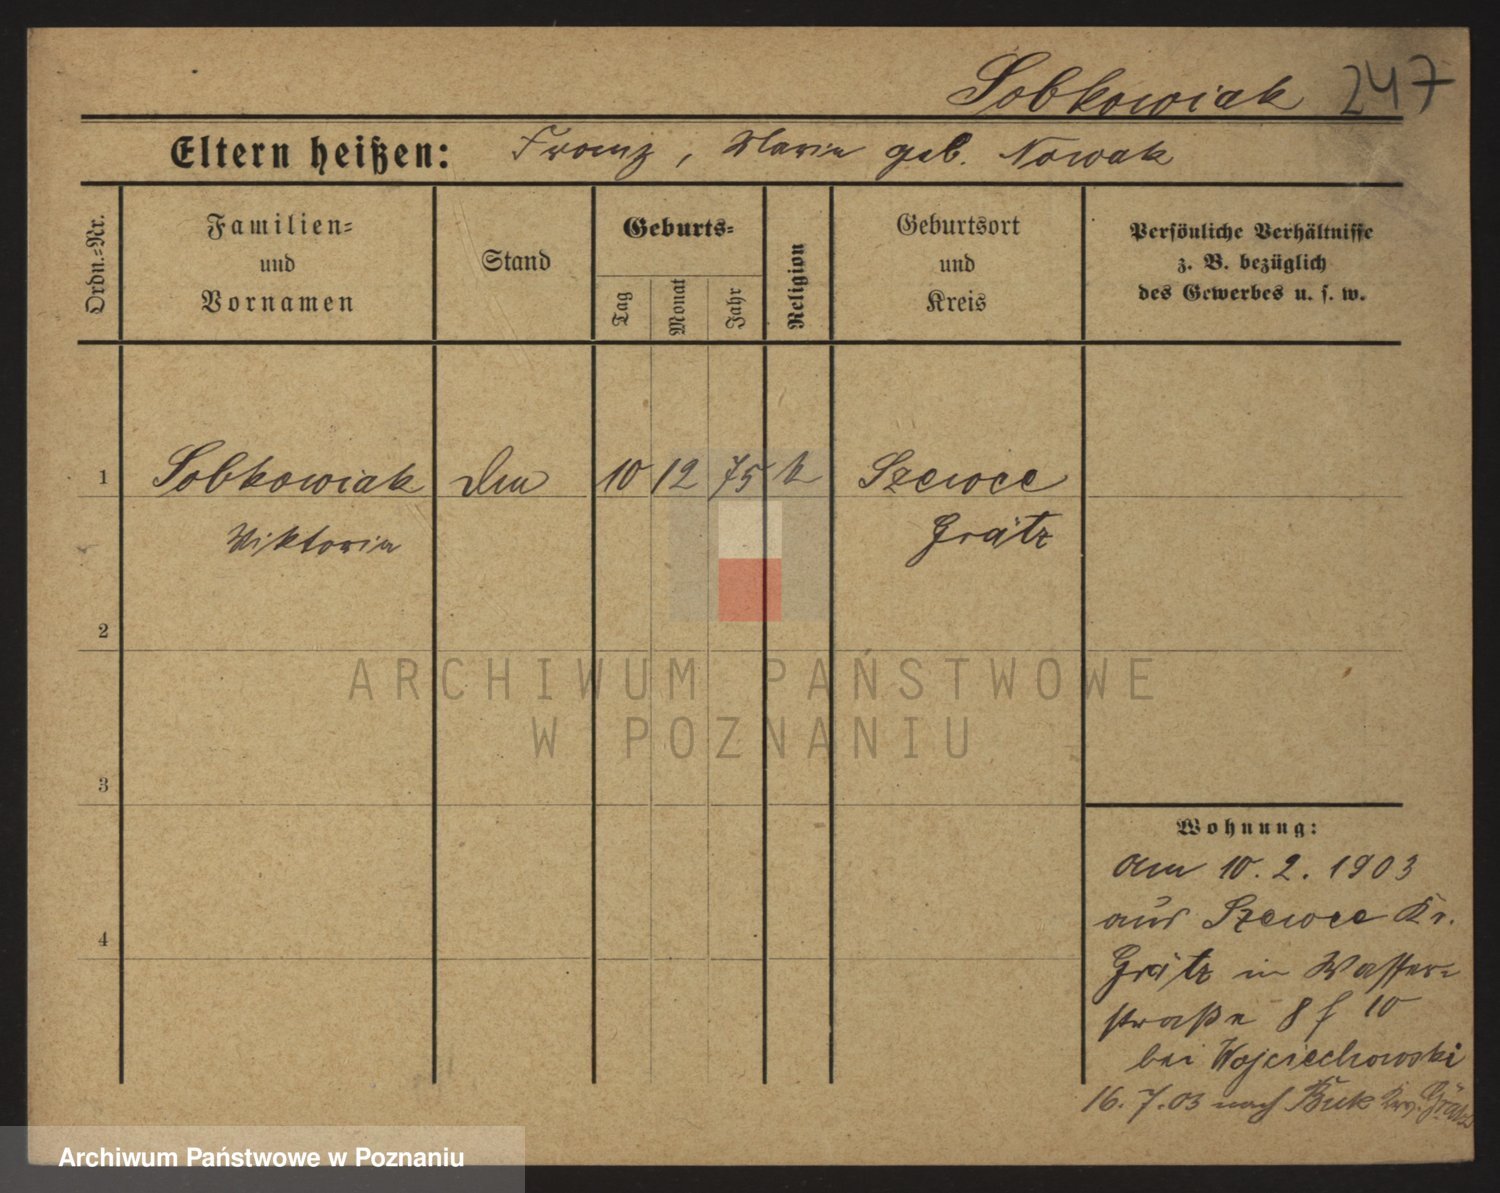 Sobkowiak 247
Eltern heißen: Franz, Maria geb. Nowak
Ordn.-Nr.
Familien-
und
Vornamen
Stand
Geburts-
Tag
Monat
Jahr
Religion
Geburtsort
und
Kreis
Persönliche Verhältnisse
z. B. bezüglich
des Gewerbes u. s. w.
1 Sobkowiak 10 12 75 k Szewce
Viktoria Grätz
2
3
4
Wohnung:
Am 10. 2. 1903
aus Szewce Kr.
Grätz in Wasser-
straße 8 f 10
bei Wojciechowski
16. 7. 03 nach Buk Grätz
ARCHIWUM PAŃSTWOWE
W POZNANIU
Archiwum Państwowe w Poznaniu